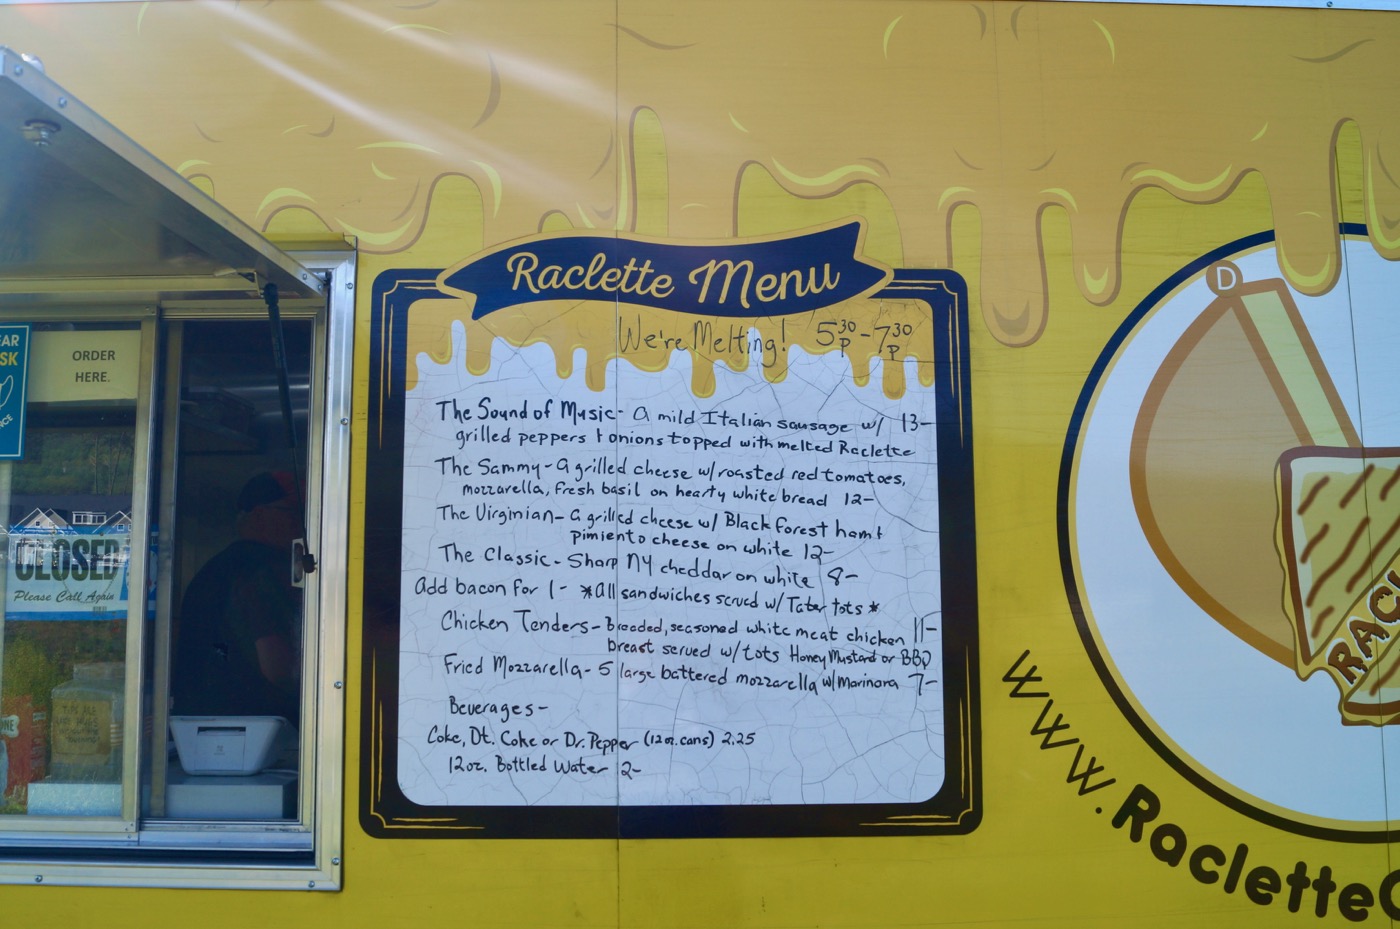 Raclette Menu
We're Melting! 5:30p - 7:30p
The Sound of Music - a mild Italian sausage w/ 13-
grilled peppers & onions topped with melted Raclette
The Sammy - a grilled cheese w/ roasted red tomatoes,
mozzarella, fresh basil on hearty white bread 12-
The Virginian - a grilled cheese w/ Black forest ham &
pimiento cheese on white 12-
The Classic - Sharp NY cheddar on white 8-
Add bacon for 1- *All sandwiches served w/ Tater tots*
Chicken Tenders - Breaded, seasoned white meat chicken 11-
breast served w/ tots Honey Mustard or BBQ
Fried Mozzarella - 5 large battered mozzarella w/ Marinara 7-
Beverages -
Coke, Dt. Coke or Dr. Pepper (12oz. cans) 2.25
12oz. Bottled Water 2-
ORDER
HERE.
CLOSED
Please Call Again
D
www.Raclette